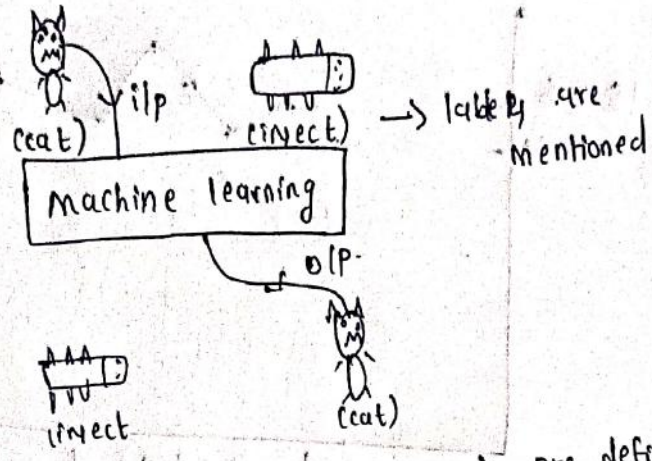 i/p
(cat)
(insect)
→ labels are
mentioned
machine learning
o/p.
(cat)
insect
are defi